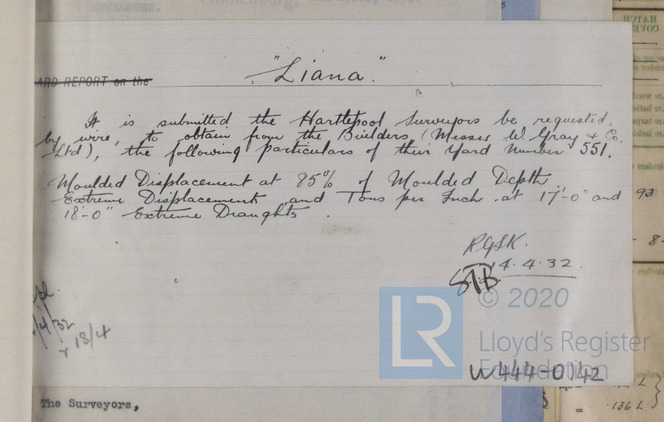 ARD REPORT on the
"Liana"
It is submitted the Hartlepool Surveyors be requested,
by wire, to obtain from the Builders (Messrs W. Gray & Co.
Ltd), the following particulars of their Yard Number 551.
Moulded Displacement at 85% of Moulded Depth
Extreme Displacement and Tons per Inch at 17'-0" and
18'-0" Extreme Draughts.
4.4.32
STB
/4/32
13/4
© 2020
LR
Lloyd's Register
Foundation
W444-0142
The Surveyors,
HATCH
COVE
93
8-
136 L
=